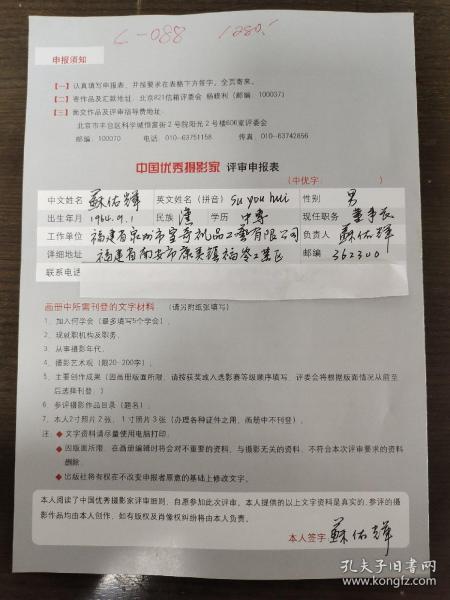 C-088 1280.-
申报须知
【一】认真填写申报表，并按要求在表格下方签字，全页寄来。
【二】寄作品及汇款地址：北京821信箱评委会 杨棣利（邮编：100037）
【三】面交作品及评审指导费地址：
北京市丰台区科学城恒富街2号院阳光2号楼606室评委会
邮编：100070 电话：010-63751158 传真：010-63742856
中国优秀摄影家 评审申报表
（中优字： ）
中文姓名 蘇佑輝 英文姓名（拼音） su you hui 性别 男
出生年月 1964.9.1 民族 漢 学历 中专 现任职务 董事长
工作单位 福建省泉州市宝奇礼品工艺有限公司 负责人 蘇佑輝
详细地址 福建省南安市康美镇福岑工业区 邮编 362300
联系电话
画册中所需刊登的文字材料：（请另附纸张填写）
1、加入何学会（最多填写5个学会）。
2、现就职机构及职务。
3、从事摄影年代。
4、摄影艺术观（限20-200字）。
5、主要创作成果（因画册版面所限，请按获奖或入选影赛等级顺序填写，评委会将根据版面情况从前至
后选择刊登）
6、参评摄影作品目录（题名）。
7、本人2寸照片2张，1寸照片3张（办理各种证件之用，画册中不刊登）。
注：◆文字资料请尽量使用电脑打印。
◆因版面所限，在画册编辑时将会对不重要的资料、与摄影无关的资料、不符合本次评审要求的资料
删除。
◆出版社将有权在不改变申报者原意的基础上修改文字。
本人阅读了中国优秀摄影家评审细则，自愿参加此次评审。本人提供的以上文字资料是真实的，参评的摄
影作品均由本人创作，如有版权及肖像权纠纷将由本人负责。
本人签字 蘇佑輝
孔夫子旧书网
www.kongfz.com